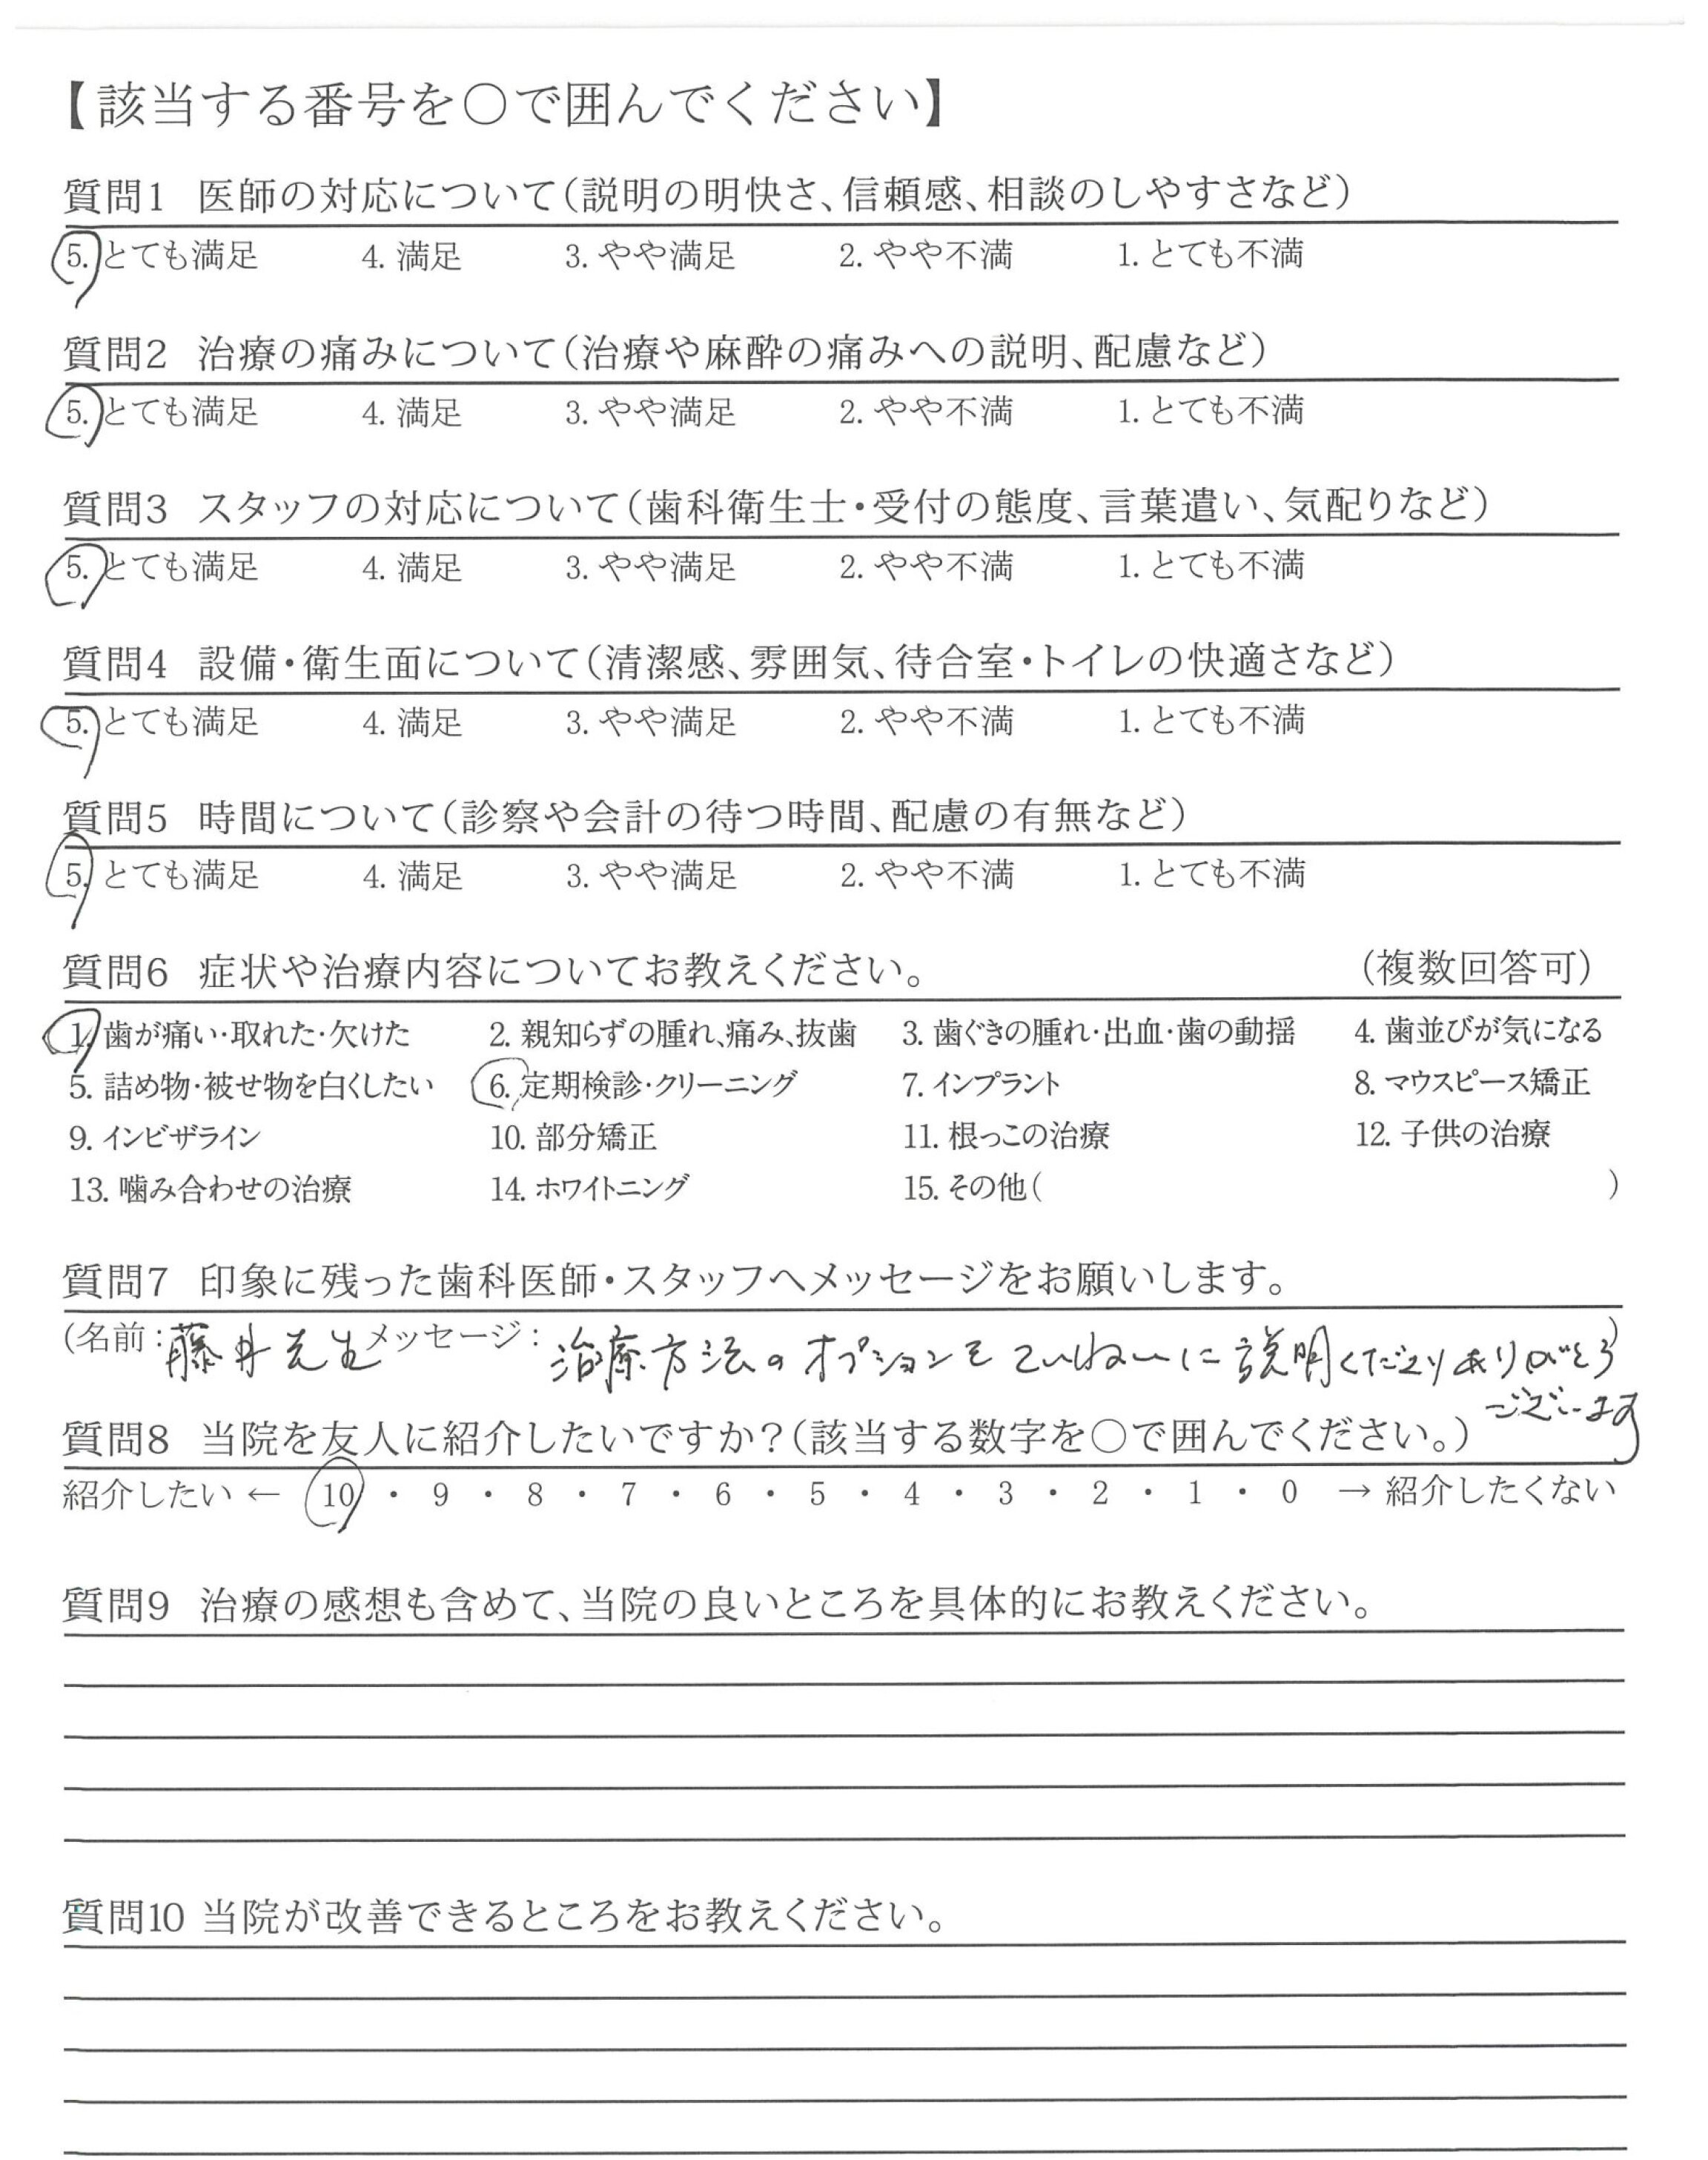 【該当する番号を○で囲んでください】
質問1 医師の対応について(説明の明快さ、信頼感、相談のしやすさなど)
5. とても満足 4. 満足 3. やや満足 2. やや不満 1. とても不満
質問2 治療の痛みについて(治療や麻酔の痛みへの説明、配慮など)
5. とても満足 4. 満足 3. やや満足 2. やや不満 1. とても不満
質問3 スタッフの対応について(歯科衛生士・受付の態度、言葉遣い、気配りなど)
5. とても満足 4. 満足 3. やや満足 2. やや不満 1. とても不満
質問4 設備・衛生面について(清潔感、雰囲気、待合室・トイレの快適さなど)
5. とても満足 4. 満足 3. やや満足 2. やや不満 1. とても不満
質問5 時間について(診察や会計の待つ時間、配慮の有無など)
5. とても満足 4. 満足 3. やや満足 2. やや不満 1. とても不満
質問6 症状や治療内容についてお教えください。 (複数回答可)
1. 歯が痛い・取れた・欠けた 2. 親知らずの腫れ、痛み、抜歯 3. 歯ぐきの腫れ・出血・歯の動揺 4. 歯並びが気になる
5. 詰め物・被せ物を白くしたい 6. 定期検診・クリーニング 7. インプラント 8. マウスピース矯正
9. インビザライン 10. 部分矯正 11. 根っこの治療 12. 子供の治療
13. 噛み合わせの治療 14. ホワイトニング 15. その他( )
質問7 印象に残った歯科医師・スタッフへメッセージをお願いします。
(名前:藤井先生 メッセージ: 治療方法のオプションをていねいに説明くださりありがとう)
ございます
質問8 当院を友人に紹介したいですか?(該当する数字を○で囲んでください。)
紹介したい ← 10 ・ 9 ・ 8 ・ 7 ・ 6 ・ 5 ・ 4 ・ 3 ・ 2 ・ 1 ・ 0 → 紹介したくない
質問9 治療の感想も含めて、当院の良いところを具体的にお教えください。
質問10 当院が改善できるところをお教えください。